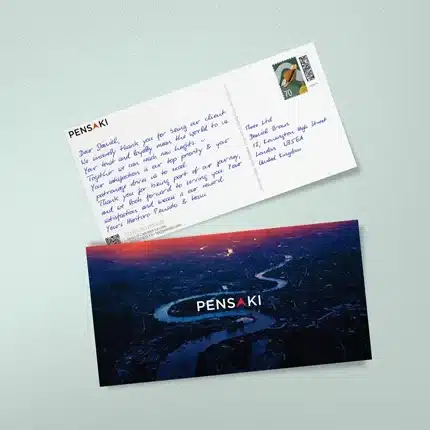 PENSAKI
Dear Daniel,
We sincerely thank you for being our client
Your trust and loyalty mean the world to us
Together we can reach new heights.
Your satisfaction is our top priority & your
patronage drives us to excel.
Thank you for being part of our journey,
and we look forward to serving you. Your
satisfaction and success is our reward.
Yours
70
Shoer Ltd
Daniel Brown
12, Kensington High Street
London W8 5EA
United Kingdom
PENSAKI